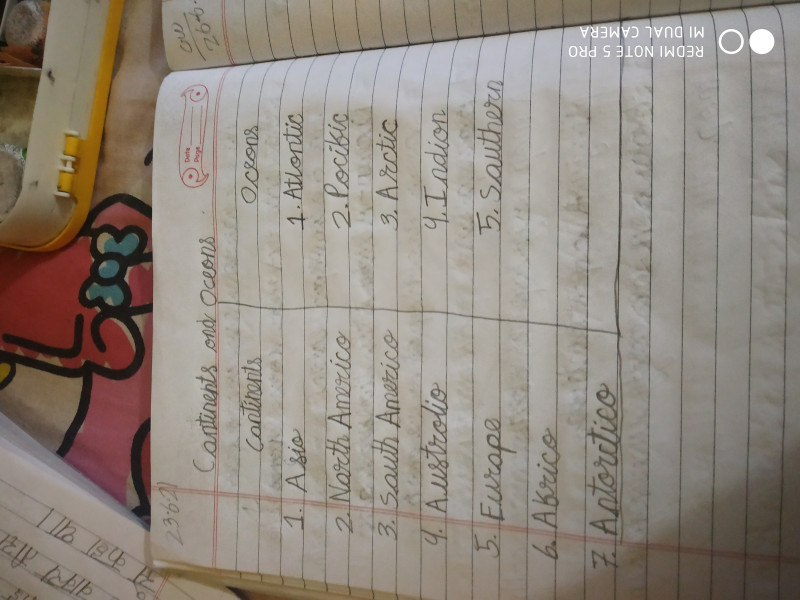 23621
Continents and Oceans
Continents Oceans
1. Asia 1. Atlontic
2. North America 2. Pocific
3. South America 3. Arctic
4. Australia 4. Indian
5. Europe 5. Southern
6. Africa
7. Antarctica
Date
Page
REDMI NOTE 5 PRO
MI DUAL CAMERA